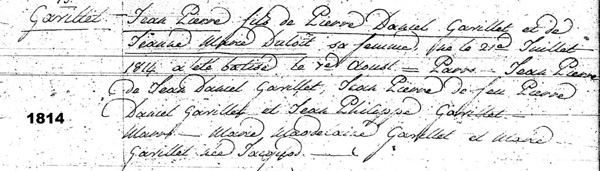 Gavillet. Jean Pierre fils de Pierre Daniel Gavillet et de
Jeanne Marie Dutoit sa femme, né le 21e Juillet
1814 a été batisé le 7e Aoust. = Parrs. Jean Pierre
de Jean Daniel Gavillet, Jean Pierre de feu Pierre
Daniel Gavillet et Jean Philippe Gavillet =
1814
Marrs. = Marie Madelaine Gavillet et Marie
Gavillet née Jaquod.